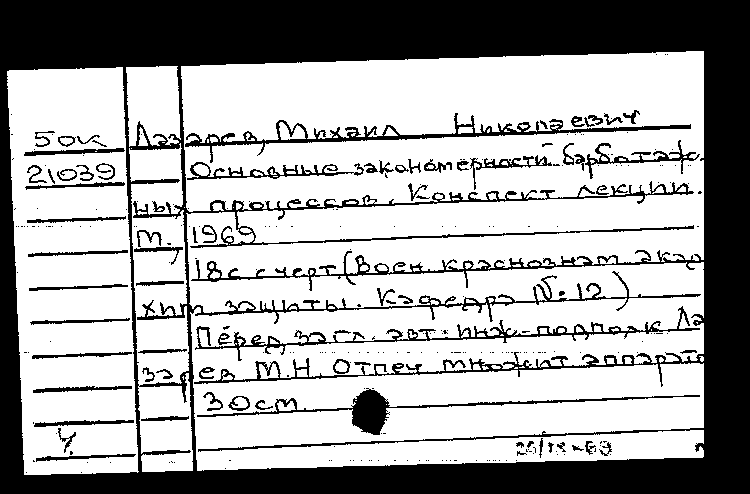 50к Лазарев, Михаил Николаевич
21039 Основные закономерности барботаж-
ных процессов. Конспект лекции.
М., 1969
18с с черт. (Воен. краснознам акад
хим защиты. Кафедра №12).
Перед загл. авт: инж-подполк Ла-
зарев М.Н. Отпеч множит аппарато
30см.
У.
26/IX-69